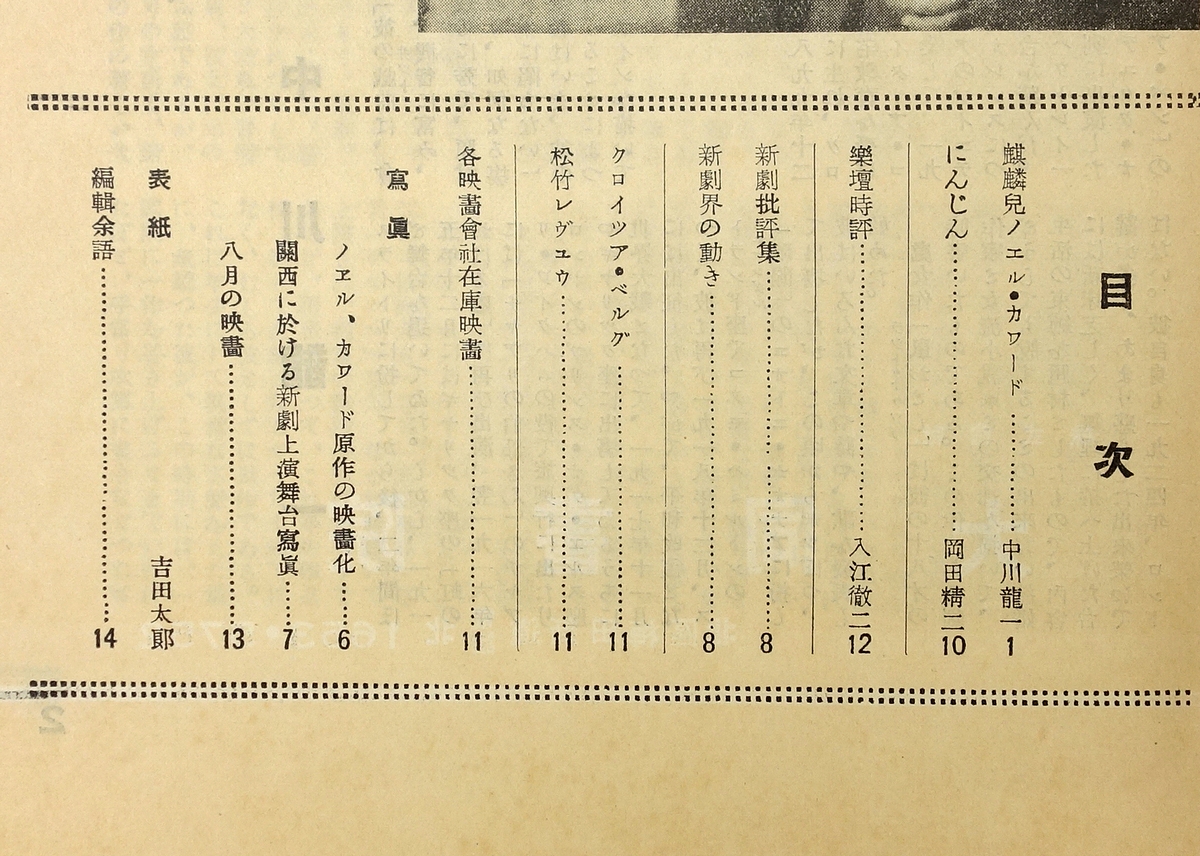 目次
麒麟兒ノエル・カワード……………中川龍一 1
にんじん……………岡田精二 10
樂壇時評……………入江徹二 12
新劇批評集……………8
新劇界の動き……………8
クロイツア・ベルグ……………11
松竹レヴュウ……………11
各映畵會社在庫映畵……………11
寫眞
ノエル、カワード原作の映畵化……………6
關西に於ける新劇上演舞台寫眞……………7
八月の映畵……………13
表紙 吉田太郞
編輯余語……………14